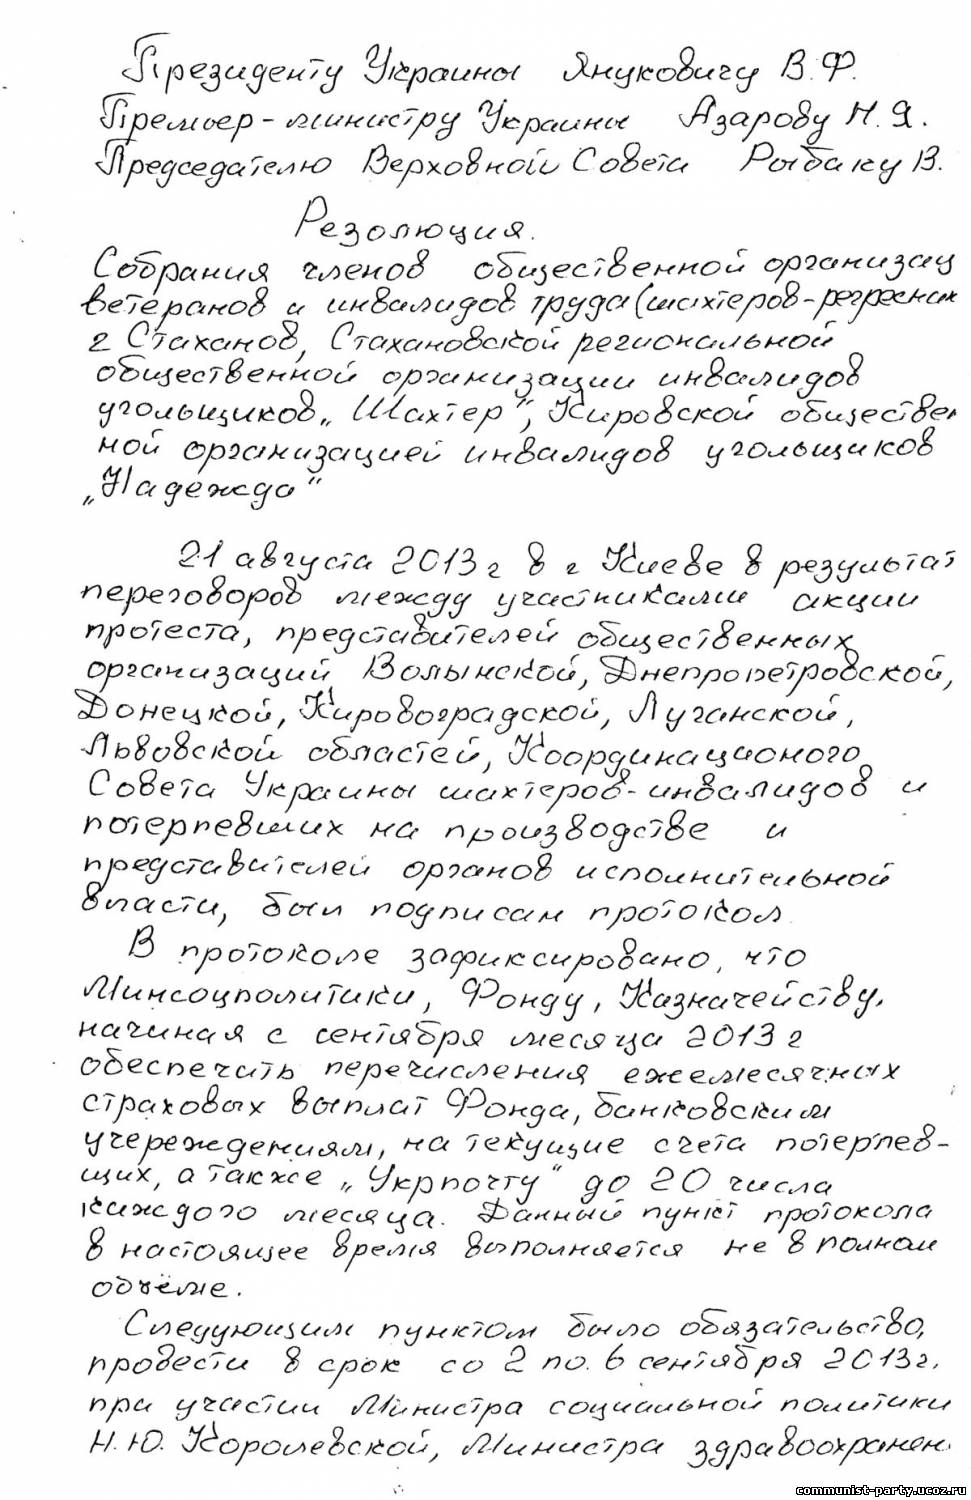 Президенту Украины Януковичу В.Ф.
Премьер-министру Украины Азарову Н.Я.
Председателю Верховной Совета Рыбаку В.
Резолюция.
Собрания членов общественной организац
ветеранов и инвалидов труда (шахтеров-регресник
г Стаханов, Стахановской региональной
общественной организации инвалидов
угольщиков „Шахтер", Кировской обществен
ной организацией инвалидов угольщиков
„Надежда"
21 августа 2013 г в г Киеве в результат
переговоров между участниками акции
протеста, представителей общественных
организаций Волынской, Днепропетровской,
Донецкой, Кировоградской, Луганской,
Львовской областей, Координационого
Совета Украины шахтеров-инвалидов и
потерпевших на производстве и
представителей органов исполнительной
власти, был подписан протокол
В протоколе зафиксировано, что
Минсоцполитики, Фонду, Казначейству,
начиная с сентября месяца 2013 г
обеспечить перечисления ежемесячных
страховых выплат Фонда, банковским
учереждениям, на текущие счета потерпев-
щих, а также „Укрпочту" до 20 числа
каждого месяца. Данный пункт протокола
в настоящее время выполняется не в полном
объёме.
Следующим пунктом было обязательство,
провести в срок со 2 по. 6 сентября 2013г.
при участии Министра социальной политики
Н.Ю. Королевской, Министра здравоохранен
communist-party.ucoz.ru